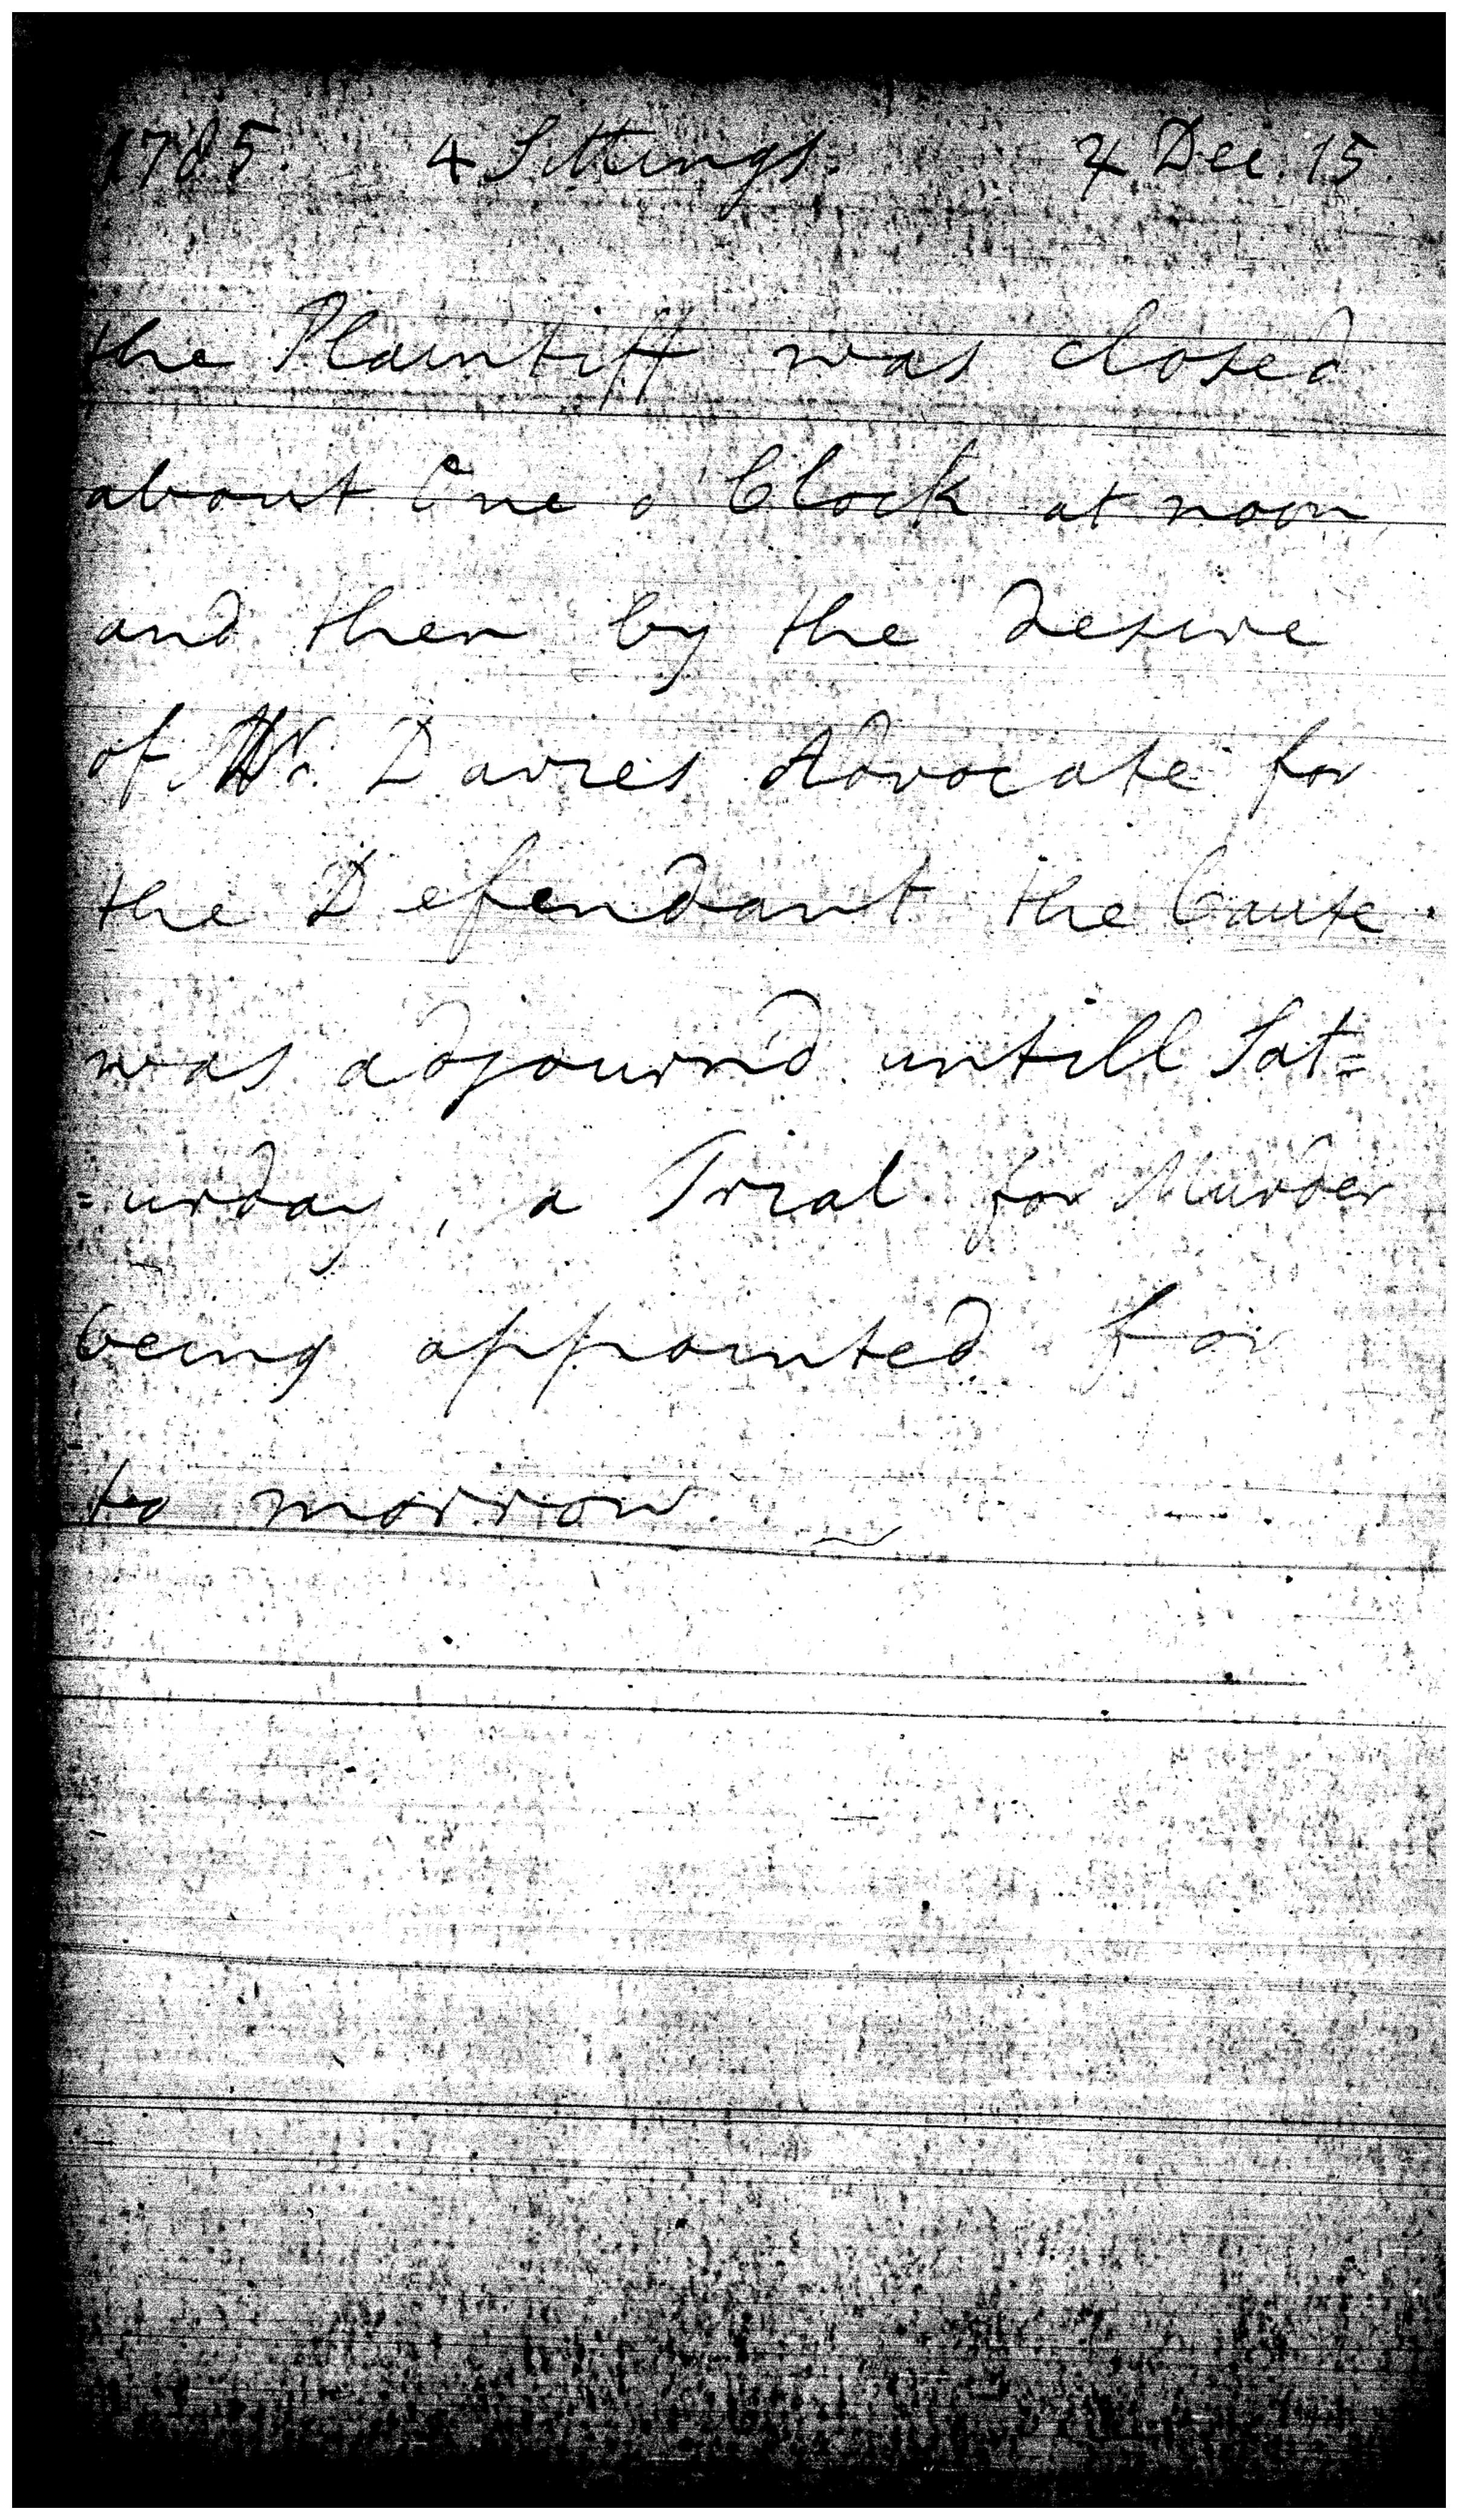 1785. 4 Sittings. ♃ Dec. 15.
the Plaintiff was closed
about One o'Clock at noon,
and then by the desire
of Mr. Davies Advocate for
the Defendant the Cause
was adjourn'd untill Sat=
=urday, a Trial for Murder
being appointed for
to morrow.